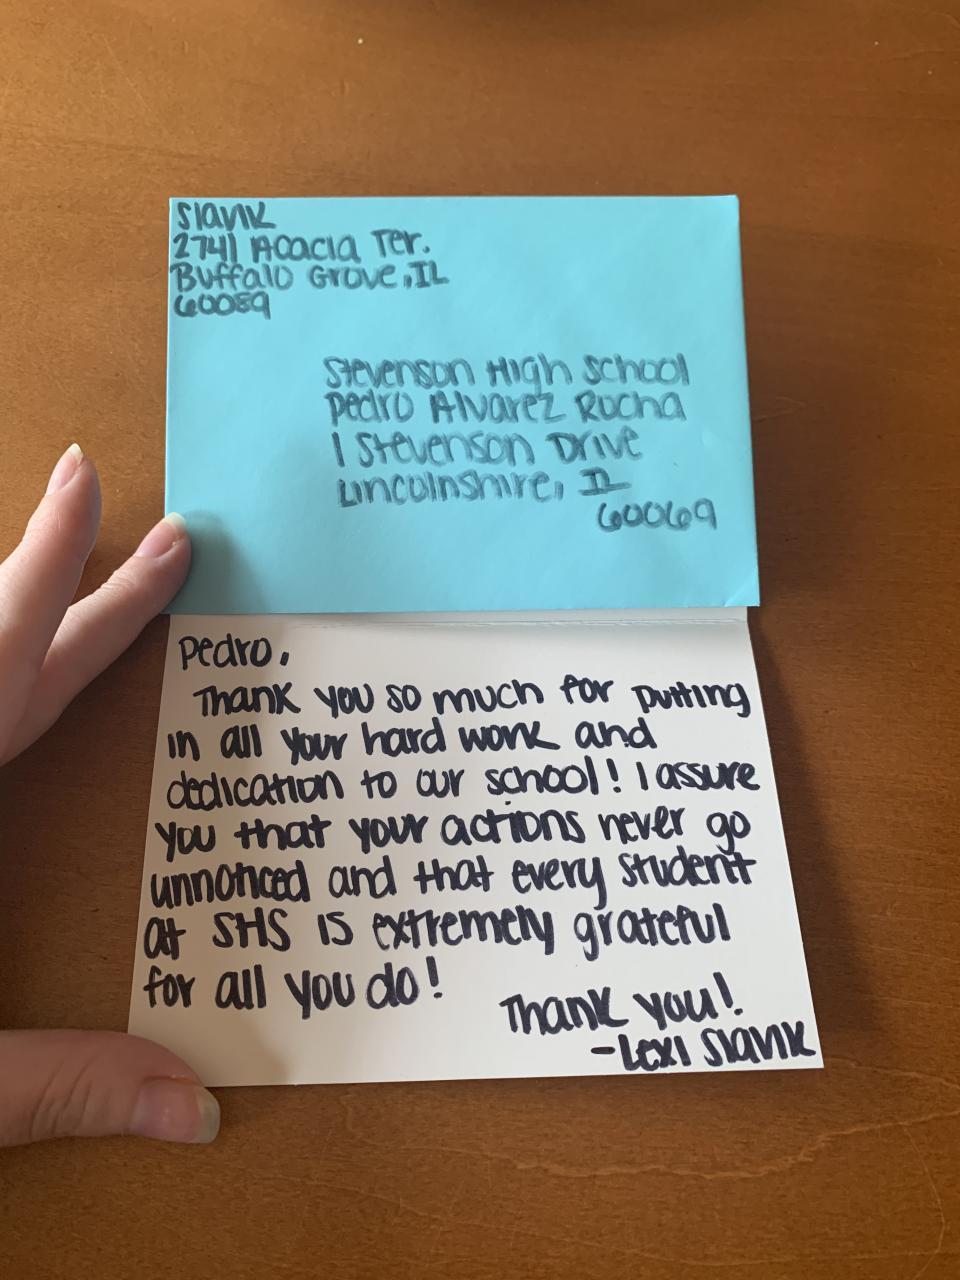 Slavik
2741 Acacia Ter.
Buffalo Grove, IL
60089
Stevenson High School
Pedro Alvarez Rocha
1 Stevenson Drive
Lincolnshire, IL
60069
Pedro,
Thank you so much for putting
in all your hard work and
dedication to our school! I assure
you that your actions never go
unnoticed and that every student
at SHS is extremely grateful
for all you do!
Thank you!
-Lexi Slavik